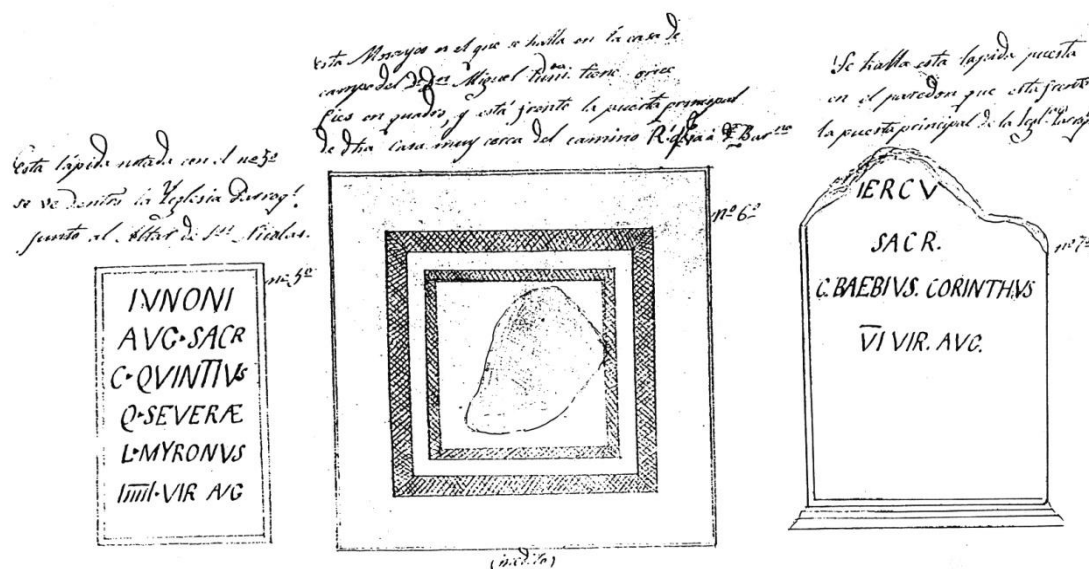 Esta lápida notada con el nº 5º
se ve dentro la Yglesia Parroql.
junto al Altar de Sn. Nicolas.
nº 5º
IVNONI
AVG·SACR
C·QVINTIVS
Q·SEVERÆ
L·MYRONVS
IIIIII·VIR AVG
Esta Mosayco es el que se halla en la casa de
campo del Dr. Dn. Miguel tiene once
pies en quadro, y está frente la puerta principal
de dha casa muy cerca del camino Rl.
nº 6º
(inédito)
Se halla esta lapida puesta
en el paredon que esta frente
la puerta principal de la
nº 7º
IERCV
SACR.
C. BAEBIVS. CORINTHVS
VI VIR. AVG.